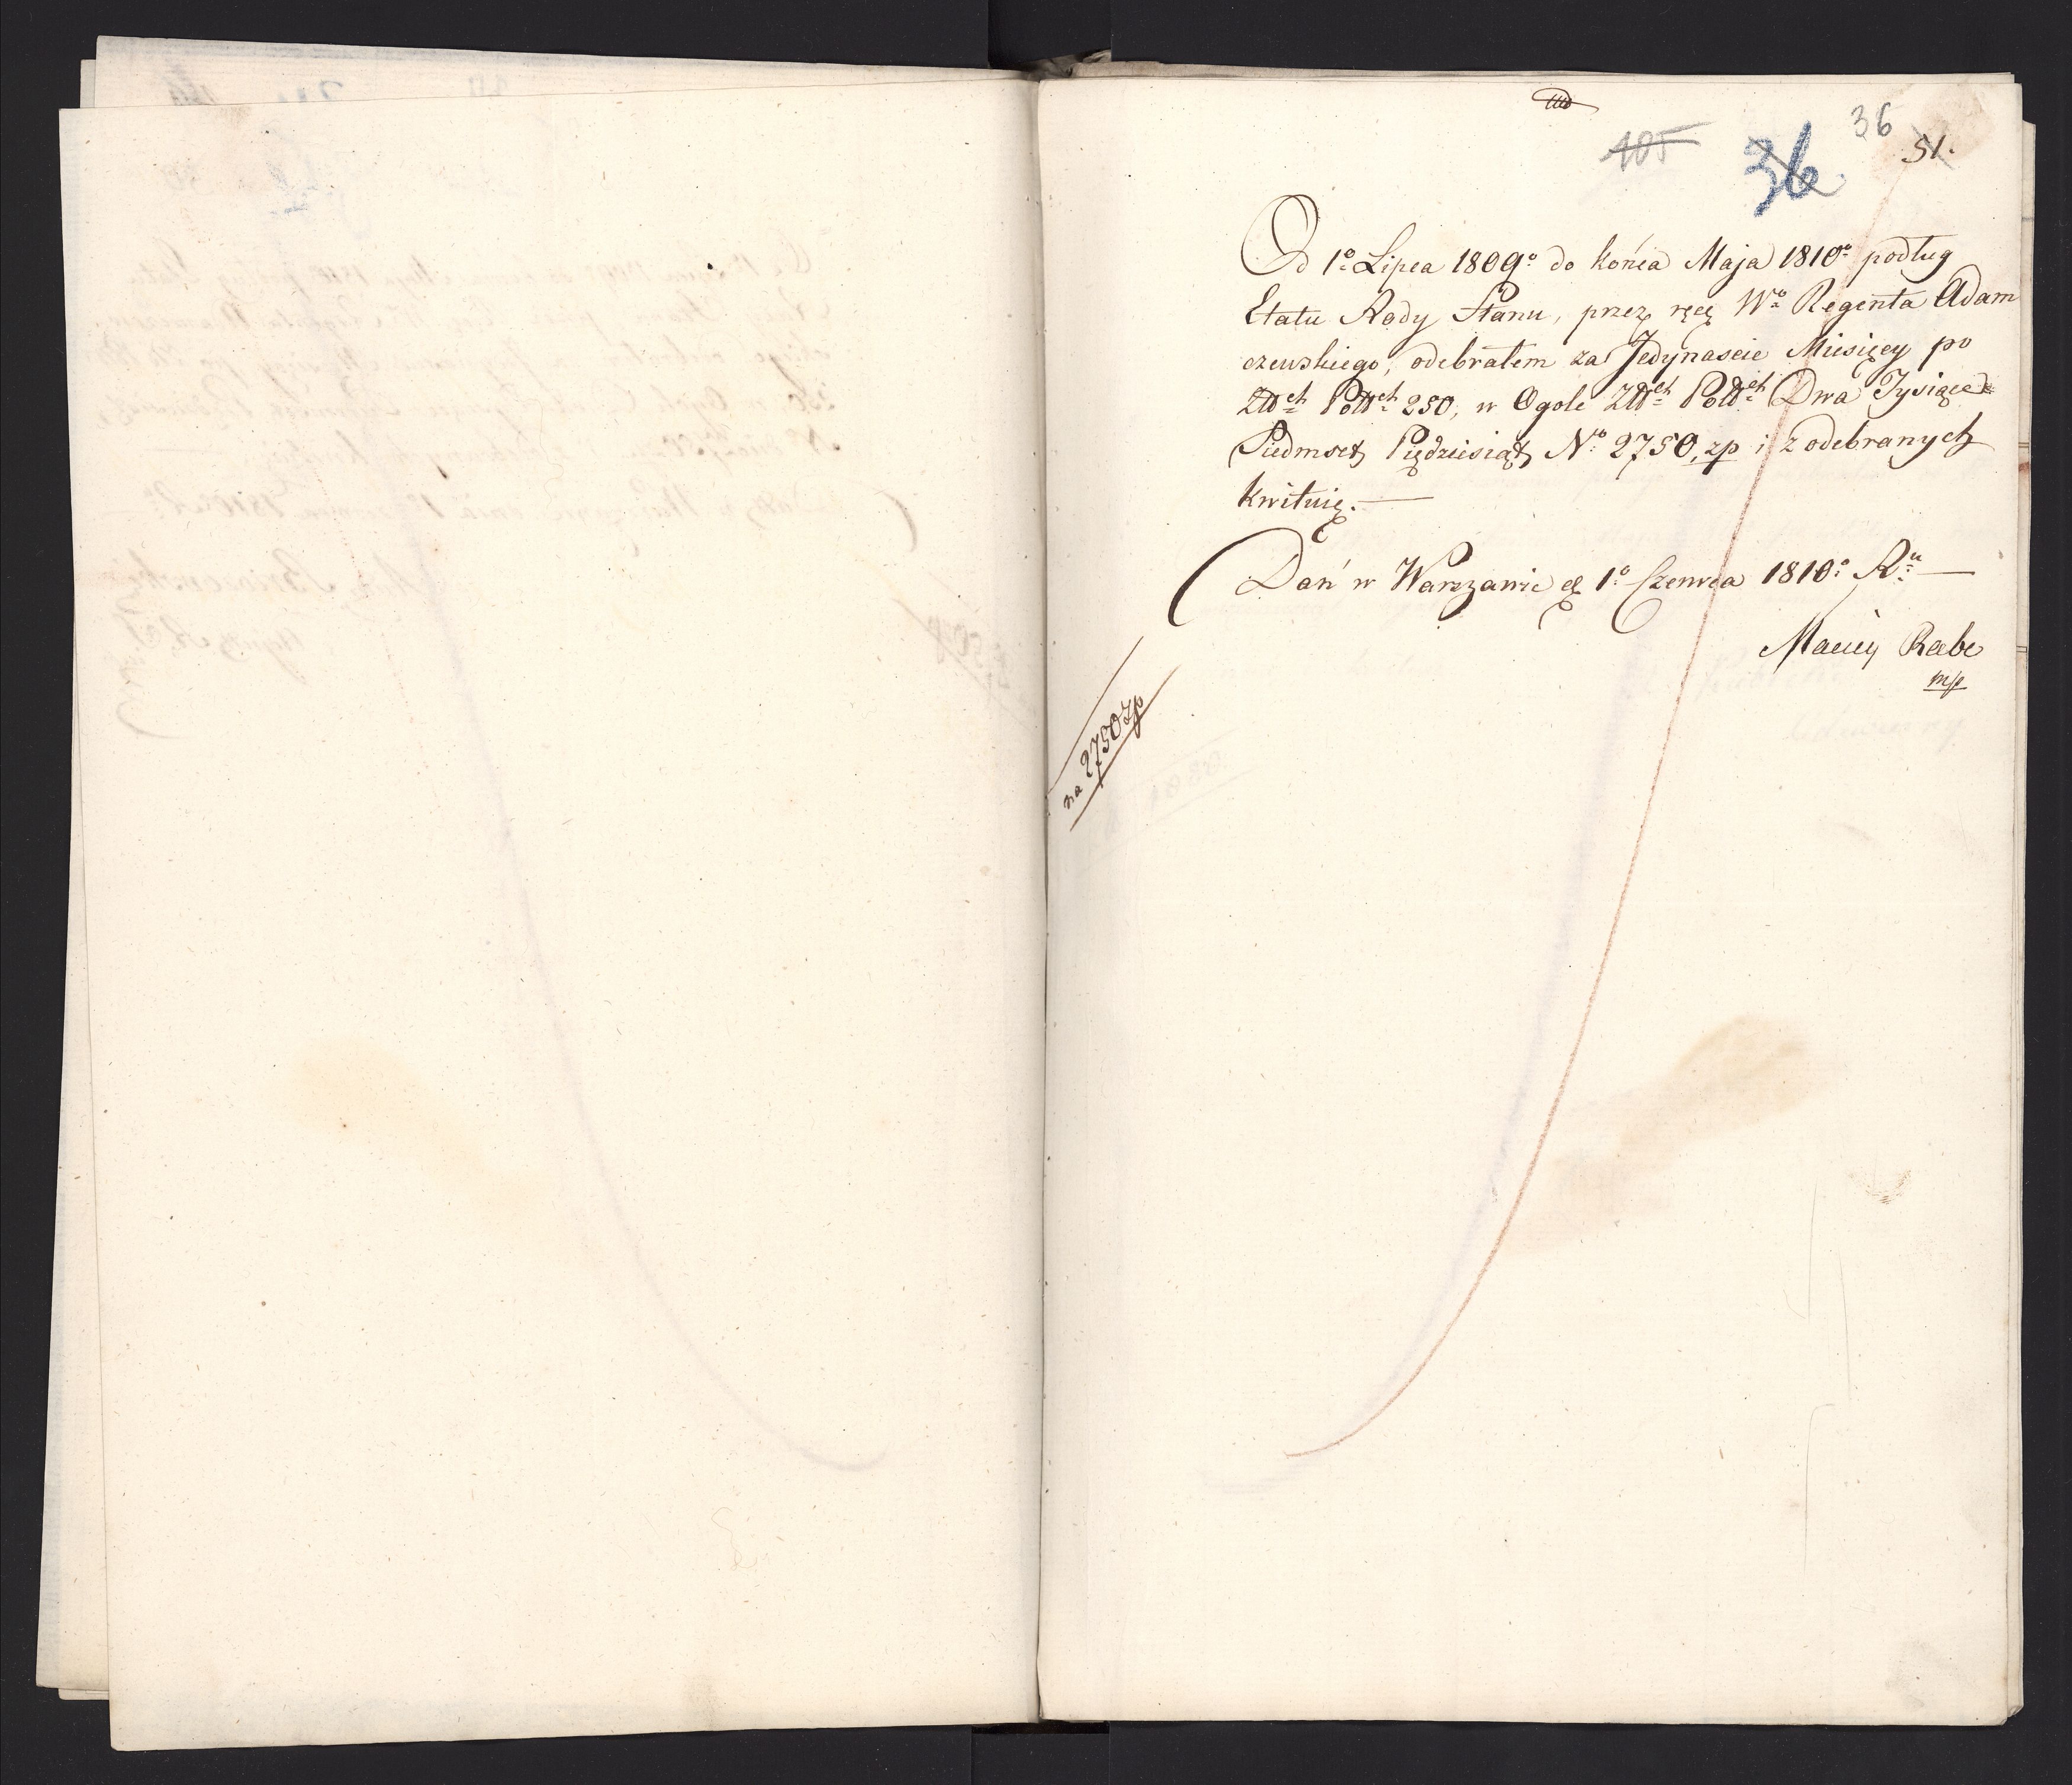 105
36
36
51.
Od 1º Lipca 1809º do końca Maja 1810º podług
Etatu Rady Stanu, przez ręcę Wº Regenta Adam
czewskiego, odebrałem za Jedynaście Miesięcy po
Złłch Pollch 250, w Ogole Złłch Pollch Dwa Tysiące
Siedmset Piędziesiąt Nº 2750, zp i z odebranych
kwituię.
Dań w Warszawie d 1º Czerwca 1810º Ru
Maciey Rabe
mp
na 2750 zp